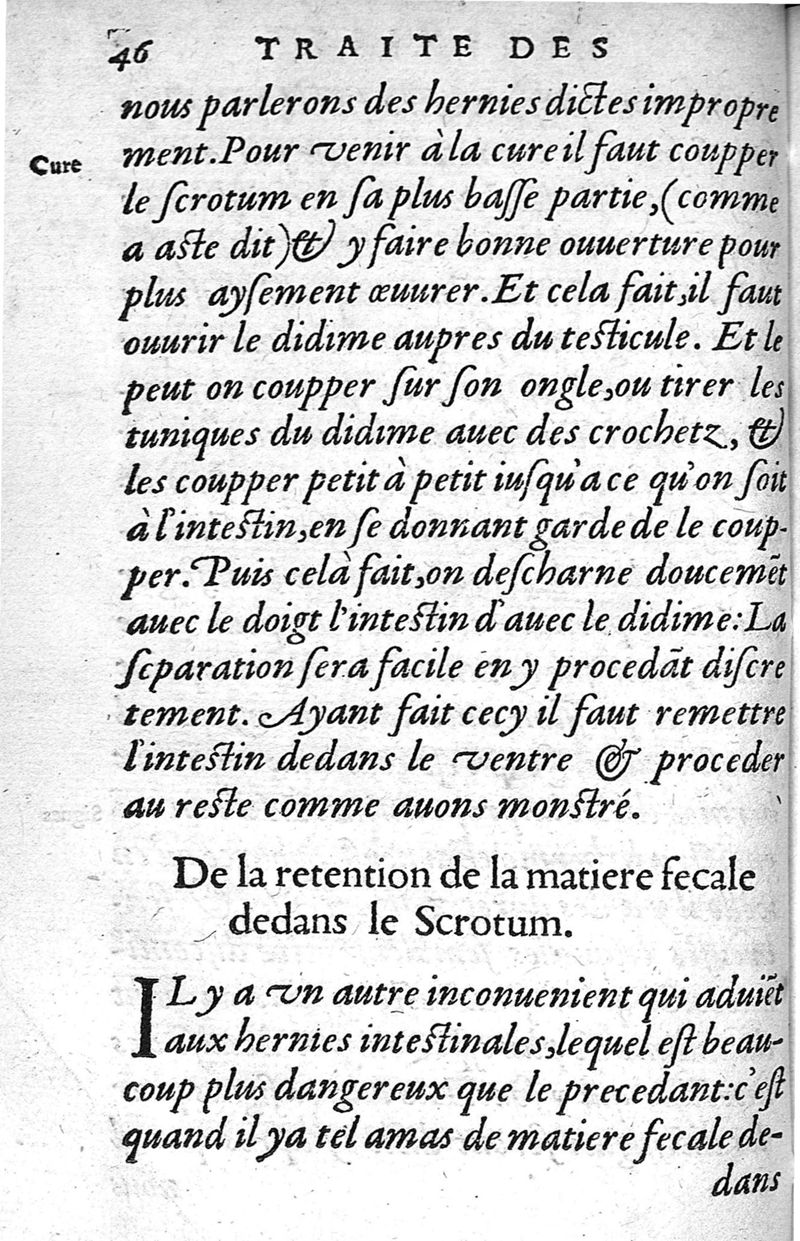 46 TRAITE DES
nous parlerons des hernies dictes impropre
Cure
ment. Pour venir à la cure il faut coupper
le ſcrotum en ſa plus baſſe partie, (comme
a aste dit) & y faire bonne ouuerture pour
plus ayſement œuurer. Et cela fait, il faut
ouurir le didime aupres du testicule. Et le
peut on coupper ſur ſon ongle, ou tirer les
tuniques du didime auec des crochetz, &
les coupper petit à petit iuſqu'a ce qu'on ſoit
à l'intestin, en ſe donnant garde de le coup-
per. Puis celà fait, on deſcharne doucemēt
auec le doigt l'intestin d'auec le didime: La
ſeparation ſera facile en y procedāt diſcre
tement. Ayant fait cecy il faut remettre
l'intestin dedans le ventre & proceder
au reste comme auons monstré.
De la retention de la matiere fecale
dedans le Scrotum.
IL y a vn autre inconuenient qui aduiēt
aux hernies intestinales, lequel eſt beau-
coup plus dangereux que le precedant: c'eſt
quand il ya tel amas de matiere fecale de-
dans